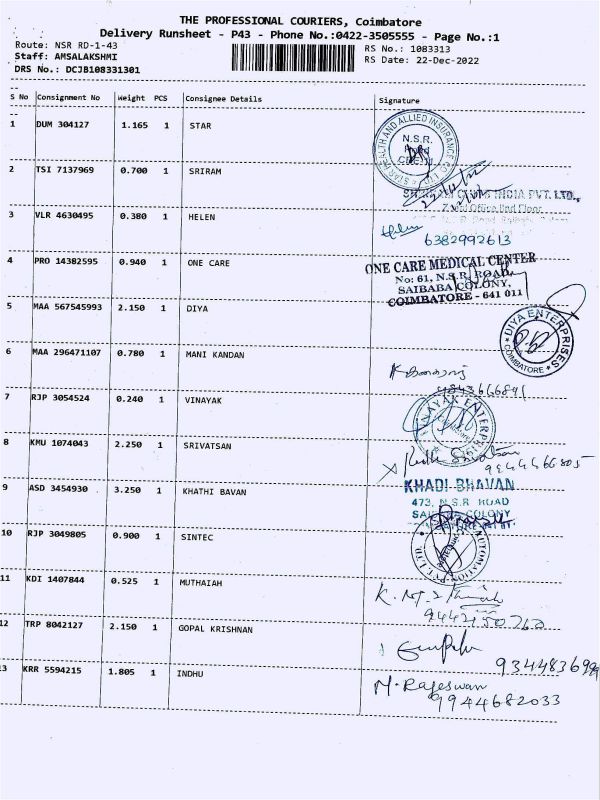 THE PROFESSIONAL COURIERS, Coimbatore
Delivery Runsheet - P43 - Phone No.:0422-3505555 - Page No.:1
Route: NSR RD-1-43
RS No.: 1083313
Staff: AMSALAKSHMI
RS Date: 22-Dec-2022
DRS No.: DCJB108331301
S No Consignment No Weight PCS Consignee Details Signature
1 DUM 304127 1.165 1 STAR
STAR HEALTH AND ALLIED INSURANCE CO
N.S.R.
2 TSI 7137969 0.700 1 SRIRAM
INDIA PVT. LTD.,
3 VLR 4630495 0.380 1 HELEN
Helen
6382992613
4 PRO 14382595 0.940 1 ONE CARE
ONE CARE MEDICAL CENTER
No: 61, N.S.R. ROAD,
SAIBABA COLONY,
COIMBATORE - 641 011
5 MAA 567545993 2.150 1 DIYA
DIYA ENTERPRISES
COIMBATORE
6 MAA 296471107 0.780 1 MANI KANDAN
7 RJP 3054524 0.240 1 VINAYAK
VINAYAK ENTERPRISES
8 KMU 1074043 2.250 1 SRIVATSAN
9 ASD 3454930 3.250 1 KHATHI BAVAN
KHADI BHAVAN
473, N.S.R ROAD
10 RJP 3049805 0.900 1 SINTEC
AUTOMATION PVT. LTD.
11 KDI 1407844 0.525 1 MUTHAIAH
12 TRP 8042127 2.150 1 GOPAL KRISHNAN
13 KRR 5594215 1.805 1 INDHU
M. Rajeswari
9944682033